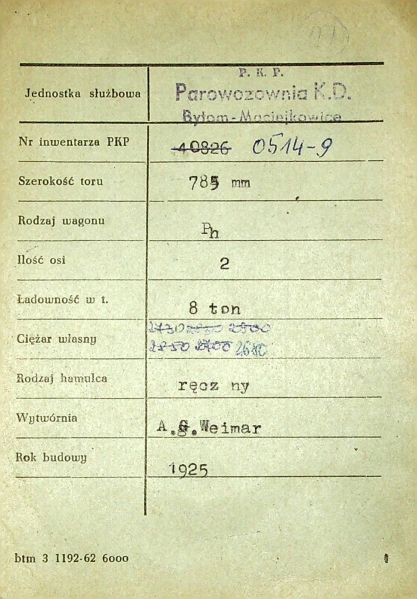 P. K. P.
Jednostka służbowa Parowozownia K.D.
Bytom-Maciejkowice
Nr inwentarza PKP 40826 0514-9
Szerokość toru 785 mm
Rodzaj wagonu Ph
Ilość osi 2
Ładowność w t. 8 ton
Ciężar własny 2680
Rodzaj hamulca ręcz ny
Wytwórnia A.G.Weimar
Rok budowy 1925
btm 3 1192-62 6000